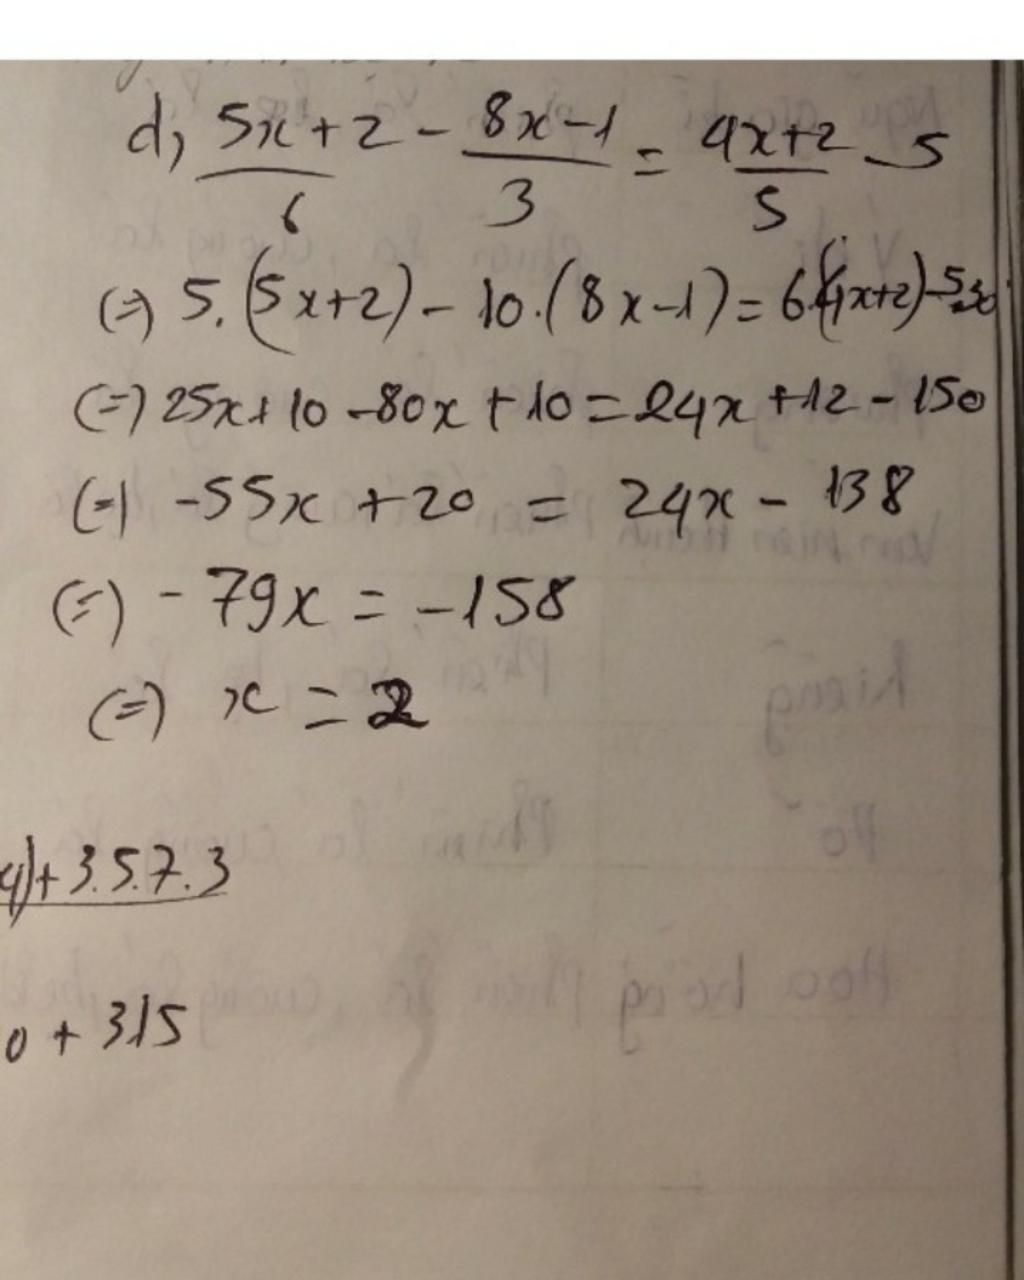 d, 5x+2 - 8x-1 = 4x+2 - 5
6 3 5
(=) 5.(5x+2) - 10.(8x-1) = 6.(4x+2) - 5.30
(=) 25x+10 -80x+10 = 24x +12 - 150
(=) -55x +20 = 24x - 138
(=) -79x = -158
(=) x = 2
4)+3.5.7.3
0 + 315